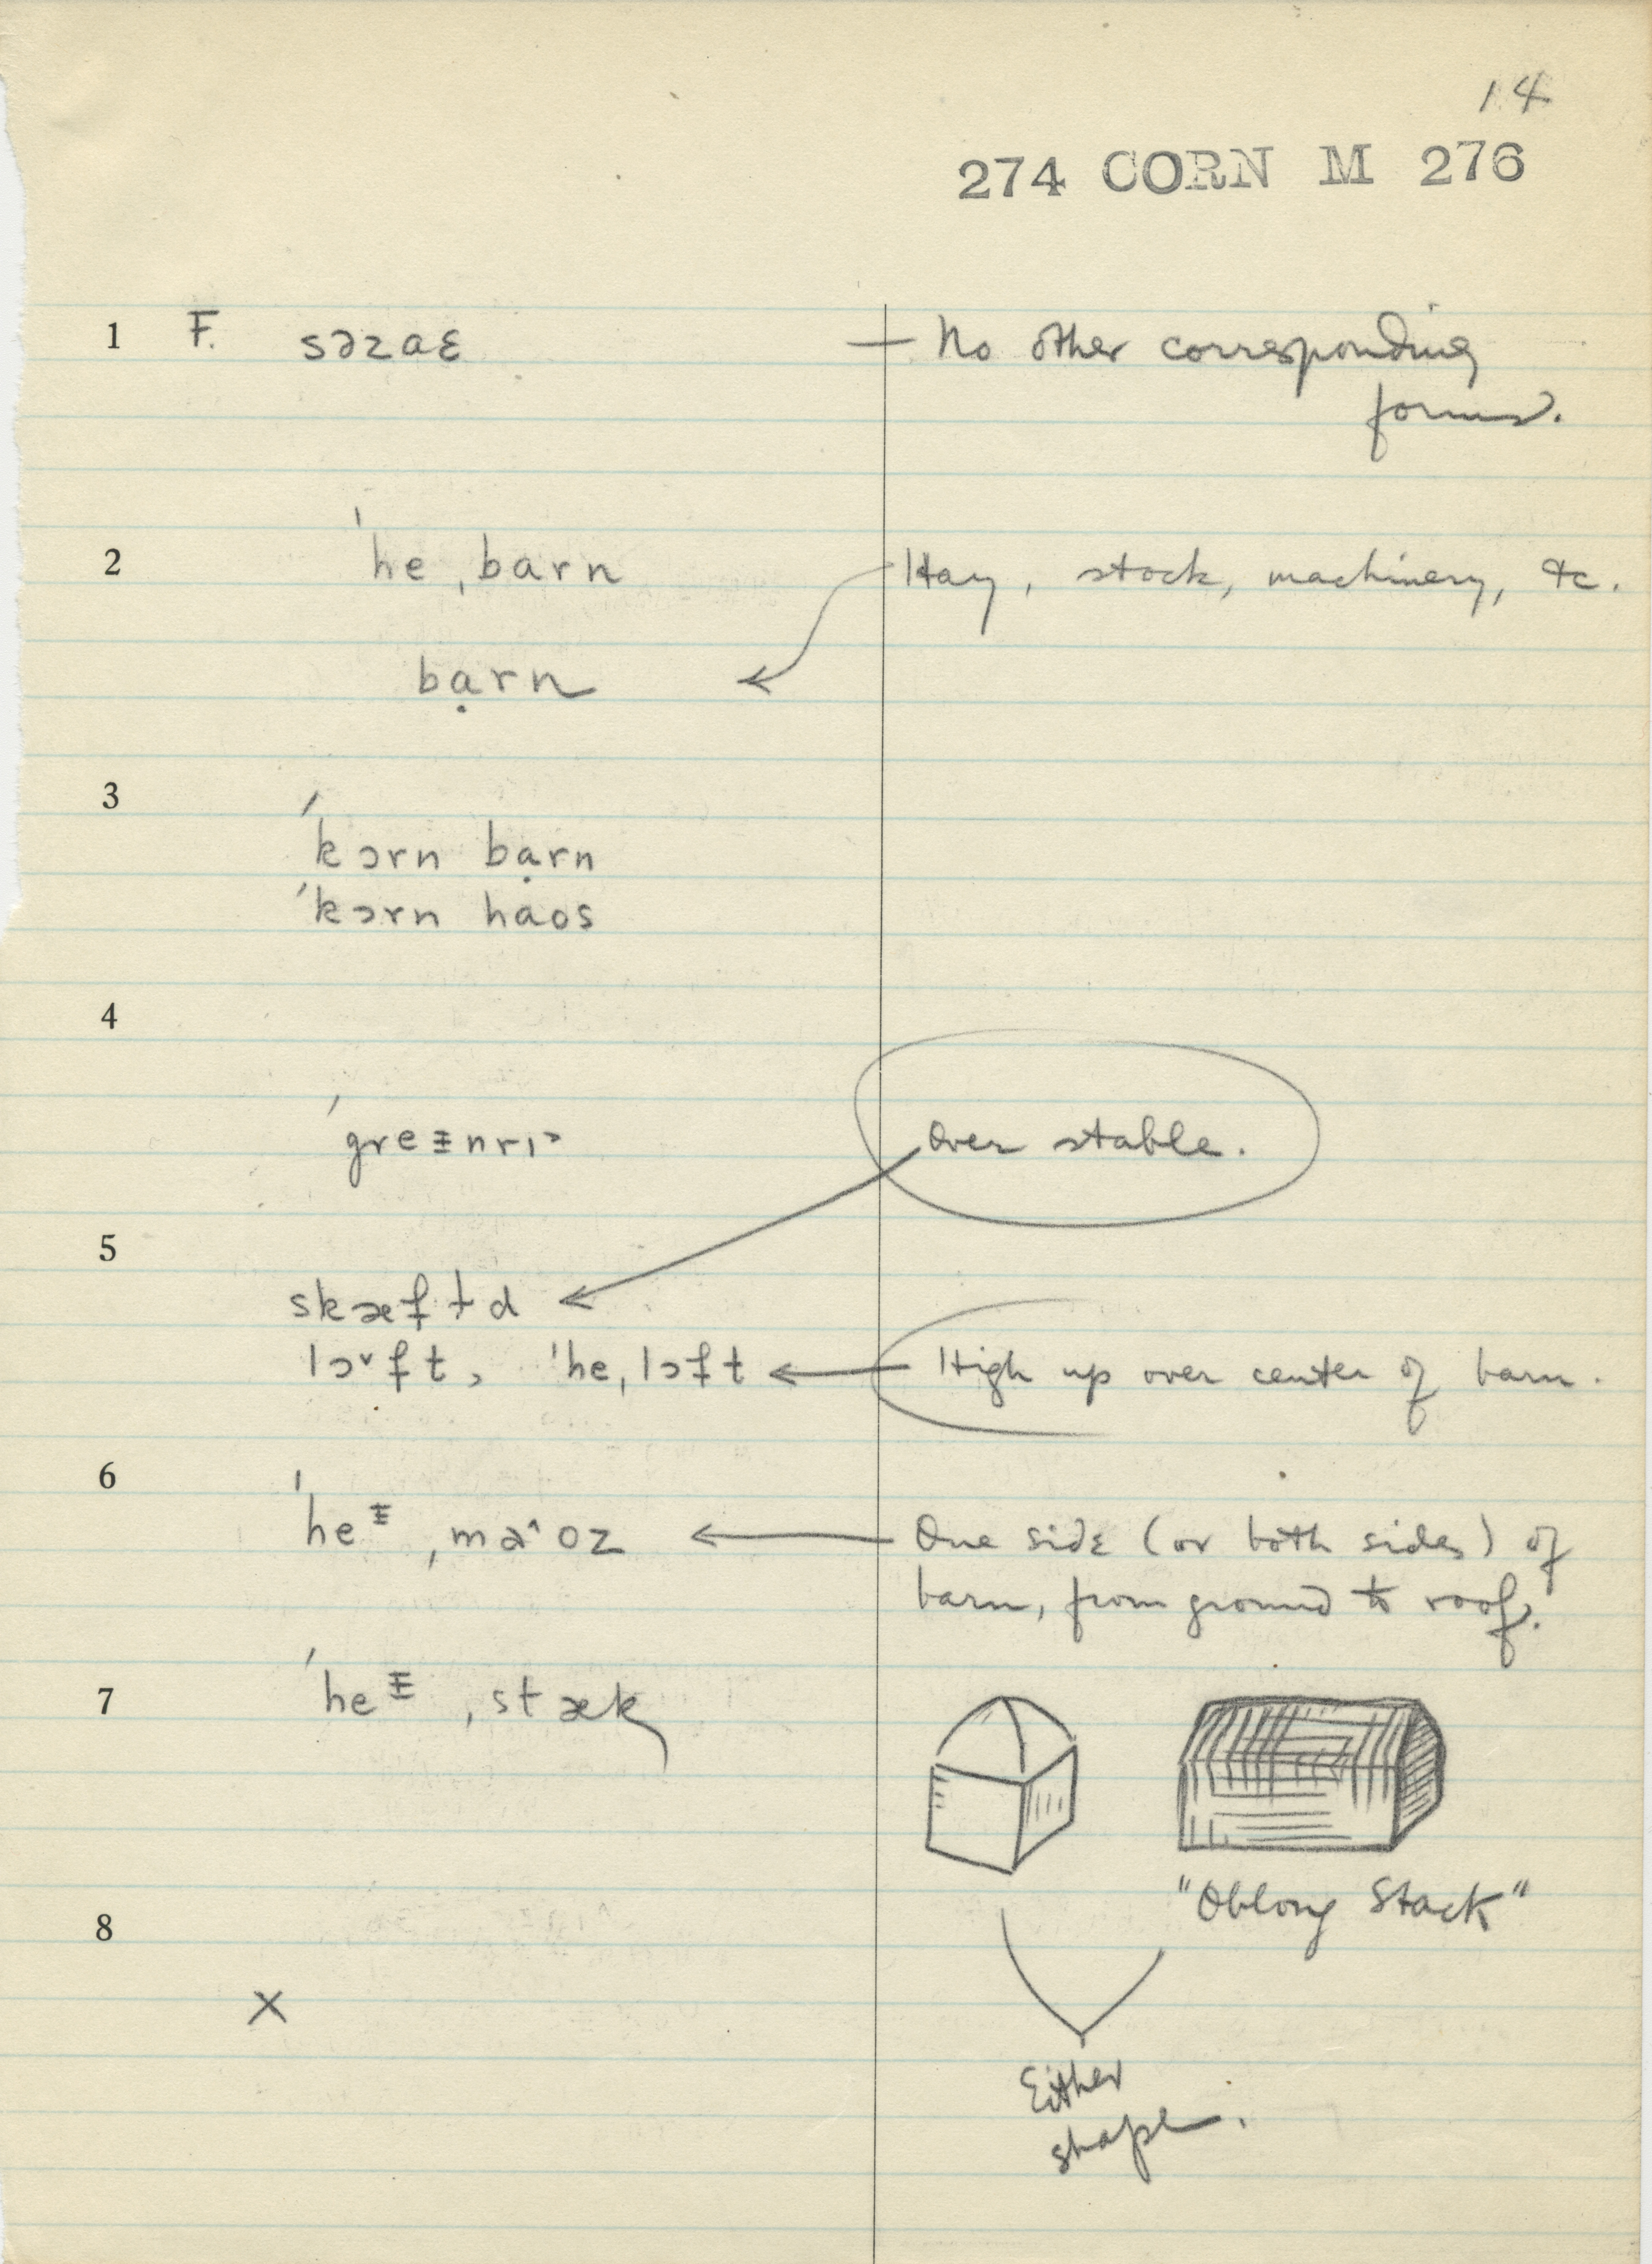 14
274 CORN M 276
1 F. səzaɛ — No other corresponding
forms.
2 ˈhe ˌbarn Hay, stock, machinery, &c.
bạrn
3
ˈkɔrn bạrn
ˈkɔrn haos
4
over stable.
5
ˈhe ˌlɔft High up over center of barn.
6
One side (or both sides) of
barn, from ground to roof.
7 ˌstæk
"Oblong Stack"
8
X
Either
shape.